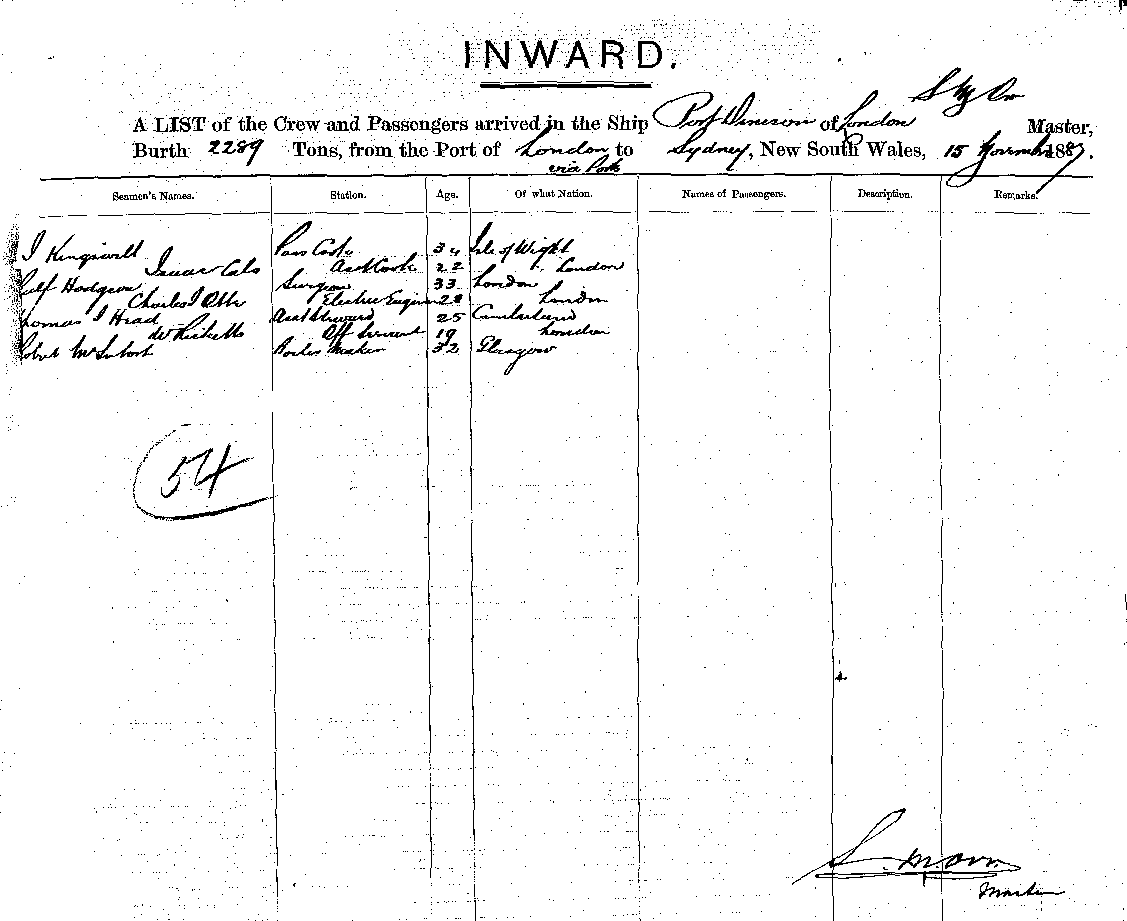 INWARD.
S M Orr
A LIST of the Crew and Passengers arrived in the Ship Port Denison of London Master,
Burth 2289 Tons, from the Port of London to Sydney, New South Wales, 15 November 1887.
via Ports
Seamen's Names. Station. Age. Of what Nation. Names of Passengers. Description. Remarks.
I Kingswell 34 Isle of Wight
Isaac Asst Cook 22 London
Hodgson Surgeon 33 London
Charles J Electric Engineer 28 London
Thomas J Head Asst Steward 25 Cumberland
W Ricketts Off Servant 19 London
Robert McIntosh Boiler Maker 32 Glasgow
54
S. M. Orr.
Master